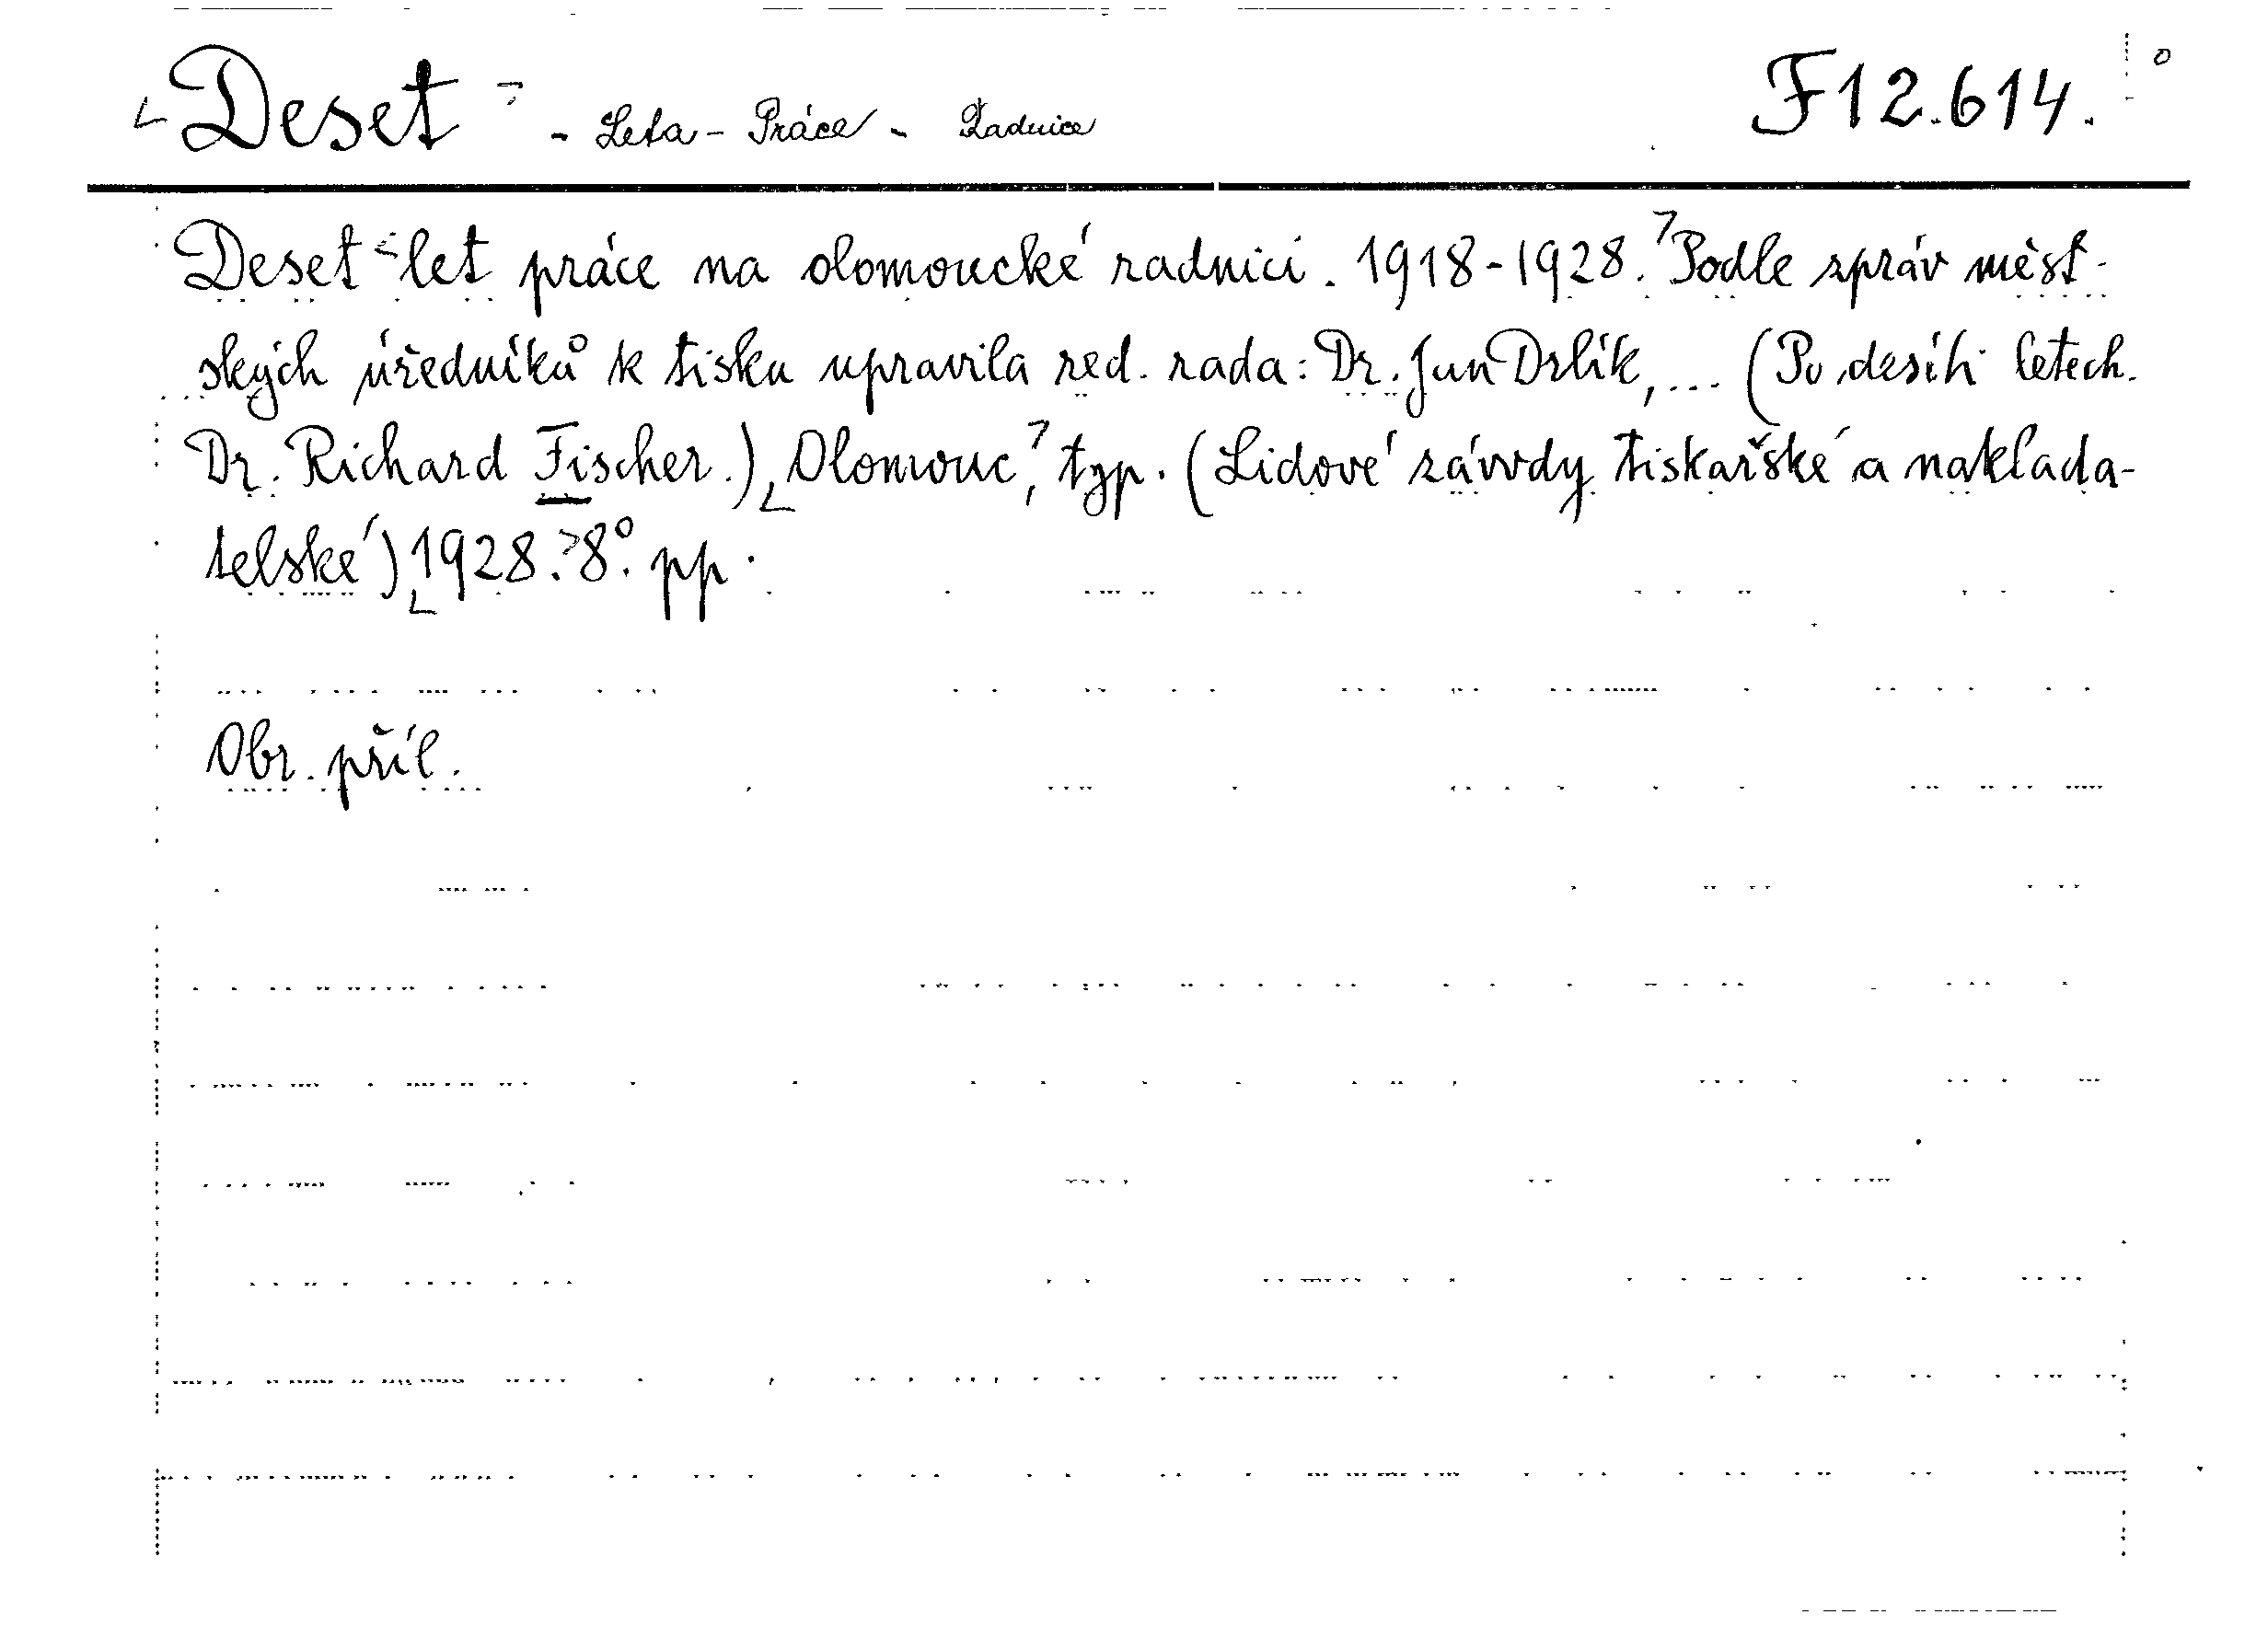 Deset - Leta - Práce - Radnice F 12.614.
Deset let práce na olomoucké radnici. 1918-1928. Podle zpráv měst-
ských úředníků k tisku upravila red. rada: Dr. Jan Drlík, ... (Po desíti letech.
Dr. Richard Fischer.) Olomouc, typ. (Lidové závody tiskařské a naklada-
telské) 1928. 8°. pp.
Obr. příl.